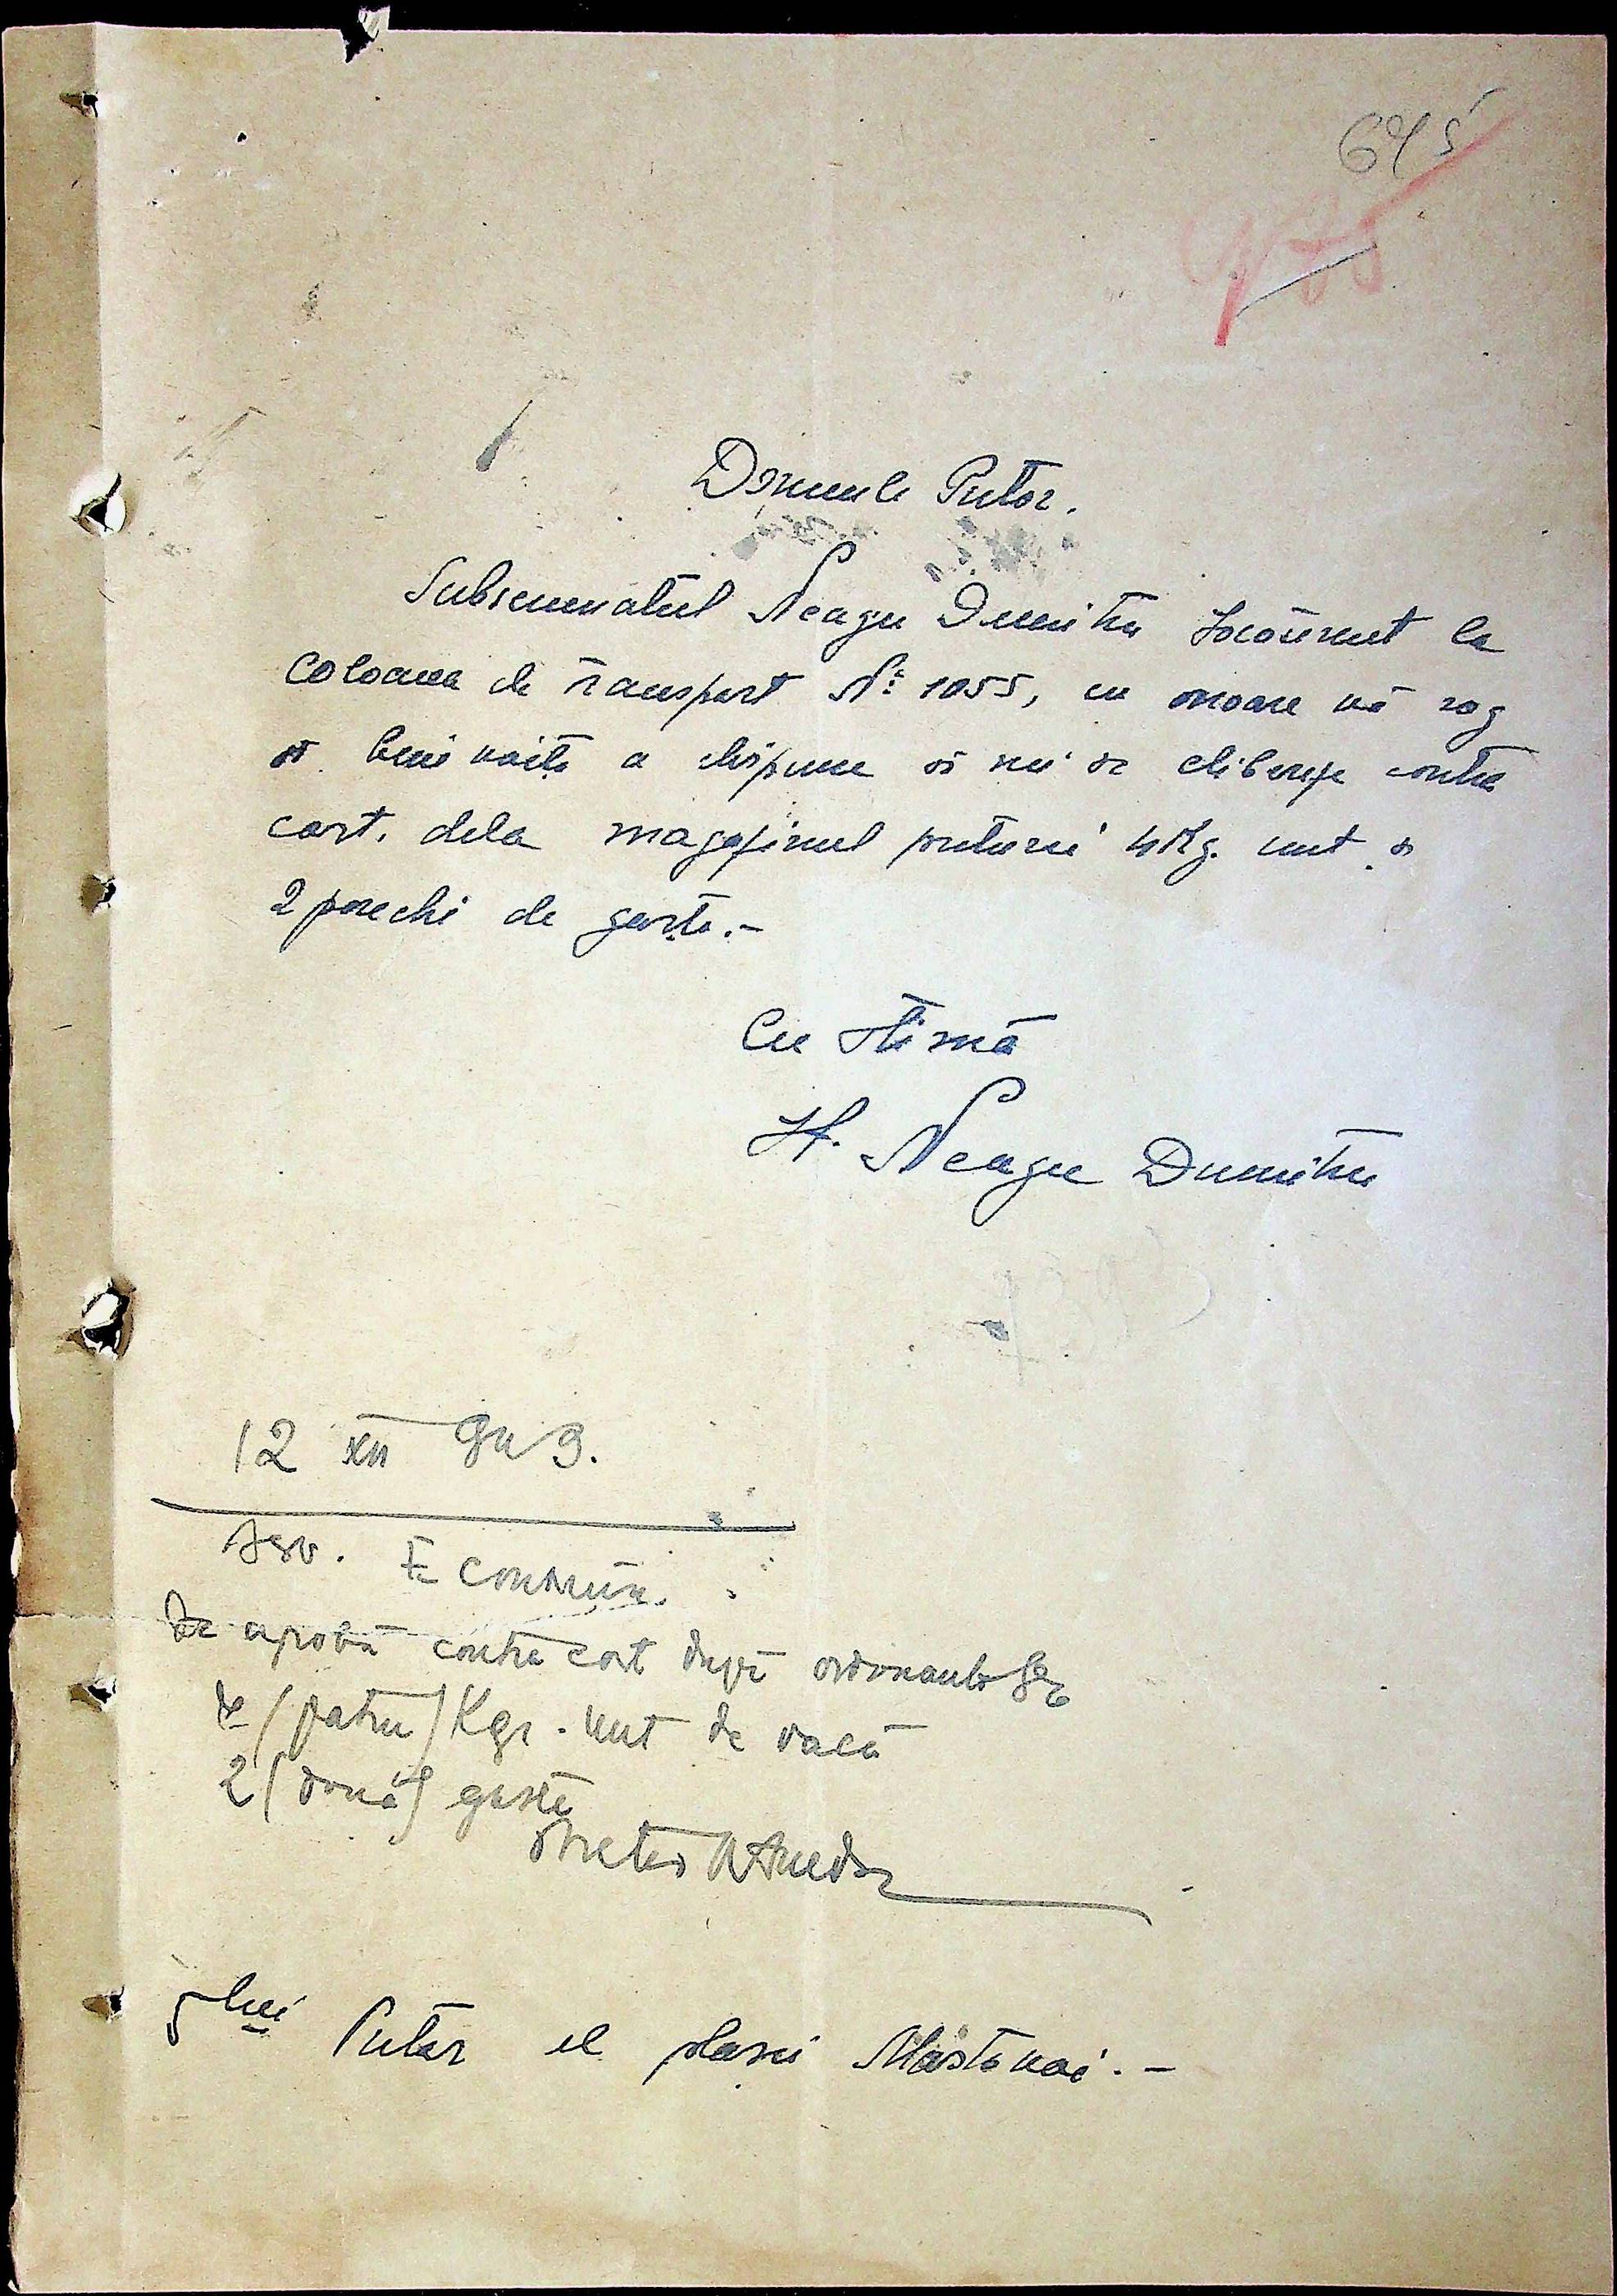 645
975
Domnule Pretor.
Subsemnatul Neagu Dumitru locotinent la
Coloana de transport Nº 1055, cu onoare vă rog
să binevoiți a dispune să mi se elibereze contra
cost, dela magazinul preturii 4 Kg. unt și
2 perechi de gaște.-
Cu stimă
Lt. Neagu Dumitru
12 XII 943.
Serv. Economic.
Se aprobă contra cost după ordonanță
4 (patru) Kgr. unt de vacă
2 (două) gaște
Pretor
Dlui Pretor al plasei Mostovoi.-